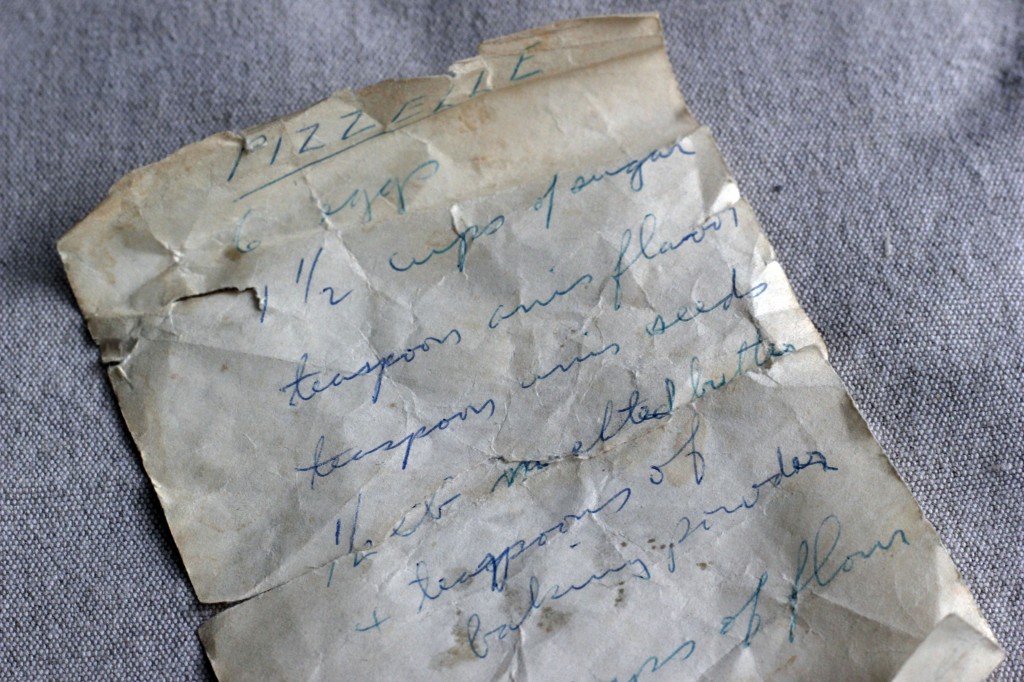 PIZZELLE
6 eggs
1 1/2 cups of sugar
teaspoon anis flavor
teaspoon anis seeds
1/2 lb melted butter
4 teaspoons of
baking powder
of flour